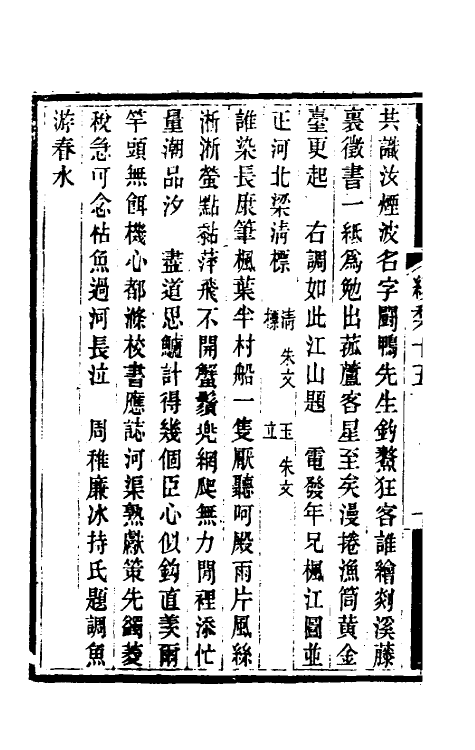 共識汝煙波名字鬭鴨先生釣鰲狂客誰繪剡溪藤
裏徵書一紙爲勉出菰蘆客星至矣漫捲漁筒黃金
臺更起　右調如此江山題　電發年兄楓江圖並
正河北梁清標　清標　朱文　玉立　朱文
誰染長康筆楓葉半村船一隻厭聽呵殿雨片風絲
淅淅螢點黏萍飛不開蟹鬚兜網爬無力閒裡添忙
量潮品汐　盡道思鱸計得幾個臣心似鉤直羨爾
竿頭無餌機心都滌校書應誌河渠熟獻策先蠲菱
稅急可念枯魚過河長泣　周稚廉冰持氏題調魚
游春水